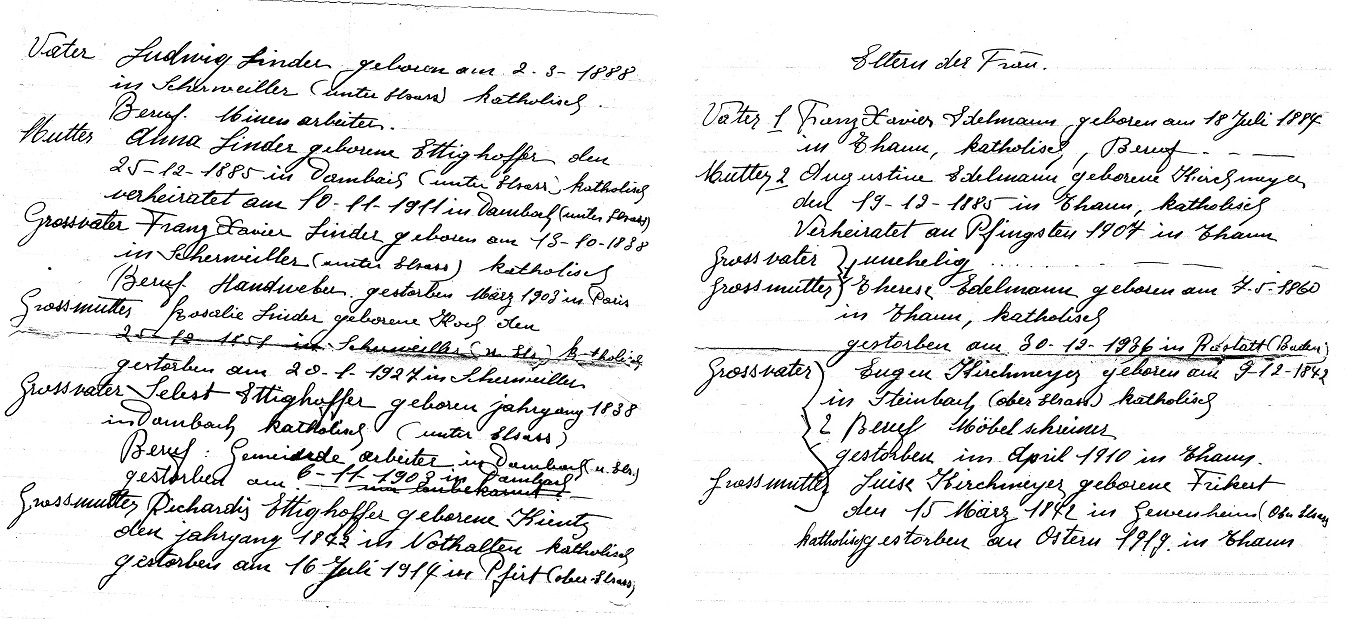 Vater Ludwig Linder geboren am 2-3-1888
in Scherweiller (unter Elsass) katholisch
Beruf. Minenarbeiter.
Mutter Anna Linder geborene Ettighoffer den
25-12-1885 in Dambach (unter Elsass) katholisch
verheiratet am 10-11-1911 in Dambach (unter Elsass)
Grossvater Franz Xavier Linder geboren am 13-10-1838
in Scherweiller (unter Elsass) katholisch
Beruf Handweber gestorben März 1903 in Paris
Grossmutter Rosalie Linder geborene Koch den
in Scherweiller (u. Els.) katholisch
gestorben am 20-1-1927 in Scherweiller
Grossvater Sebest Ettighoffer geboren jahrgang 1838
in Dambach katholisch (unter Elsass)
Beruf: Gemeinde arbeiter in Dambach (u. Els.)
gestorben am 6-11-1903 in Dambach
Grossmutter Richardis Ettighoffer geborene Kientz
den jahrgang 1842 in Nothalten katholisch
gestorben am 16 Juli 1914 in Pfirt (ober-Elsass)
Eltern der Frau.
Vater 1 Franz Xavier Edelmann geboren am 18 Juli 1884
in Thann, katholisch, Beruf - - -
Mutter 2 Augustine Edelmann geborene Kirchmeyer
den 19-12-1885 in Thann, katholisch
Verheiratet an Pfingsten 1907 in Thann
Grossvater } unehelig
Grossmutter } Therese Edelmann geboren am 7-5-1860
in Thann, katholisch
gestorben am 30-12-1936 in Rastatt (Baden)
Grossvater Eugen Kirchmeyer geboren am 9-12-1842
in Steinbach (ober Elsass) katholisch
2 Beruf Möbelschreiner
gestorben im April 1910 in Thann.
Grossmutter Luise Kirchmeyer geborene Frikert
den 15 März 1842 in Gewenheim (Ober Elsass)
katholisch gestorben an Ostern 1919 in Thann